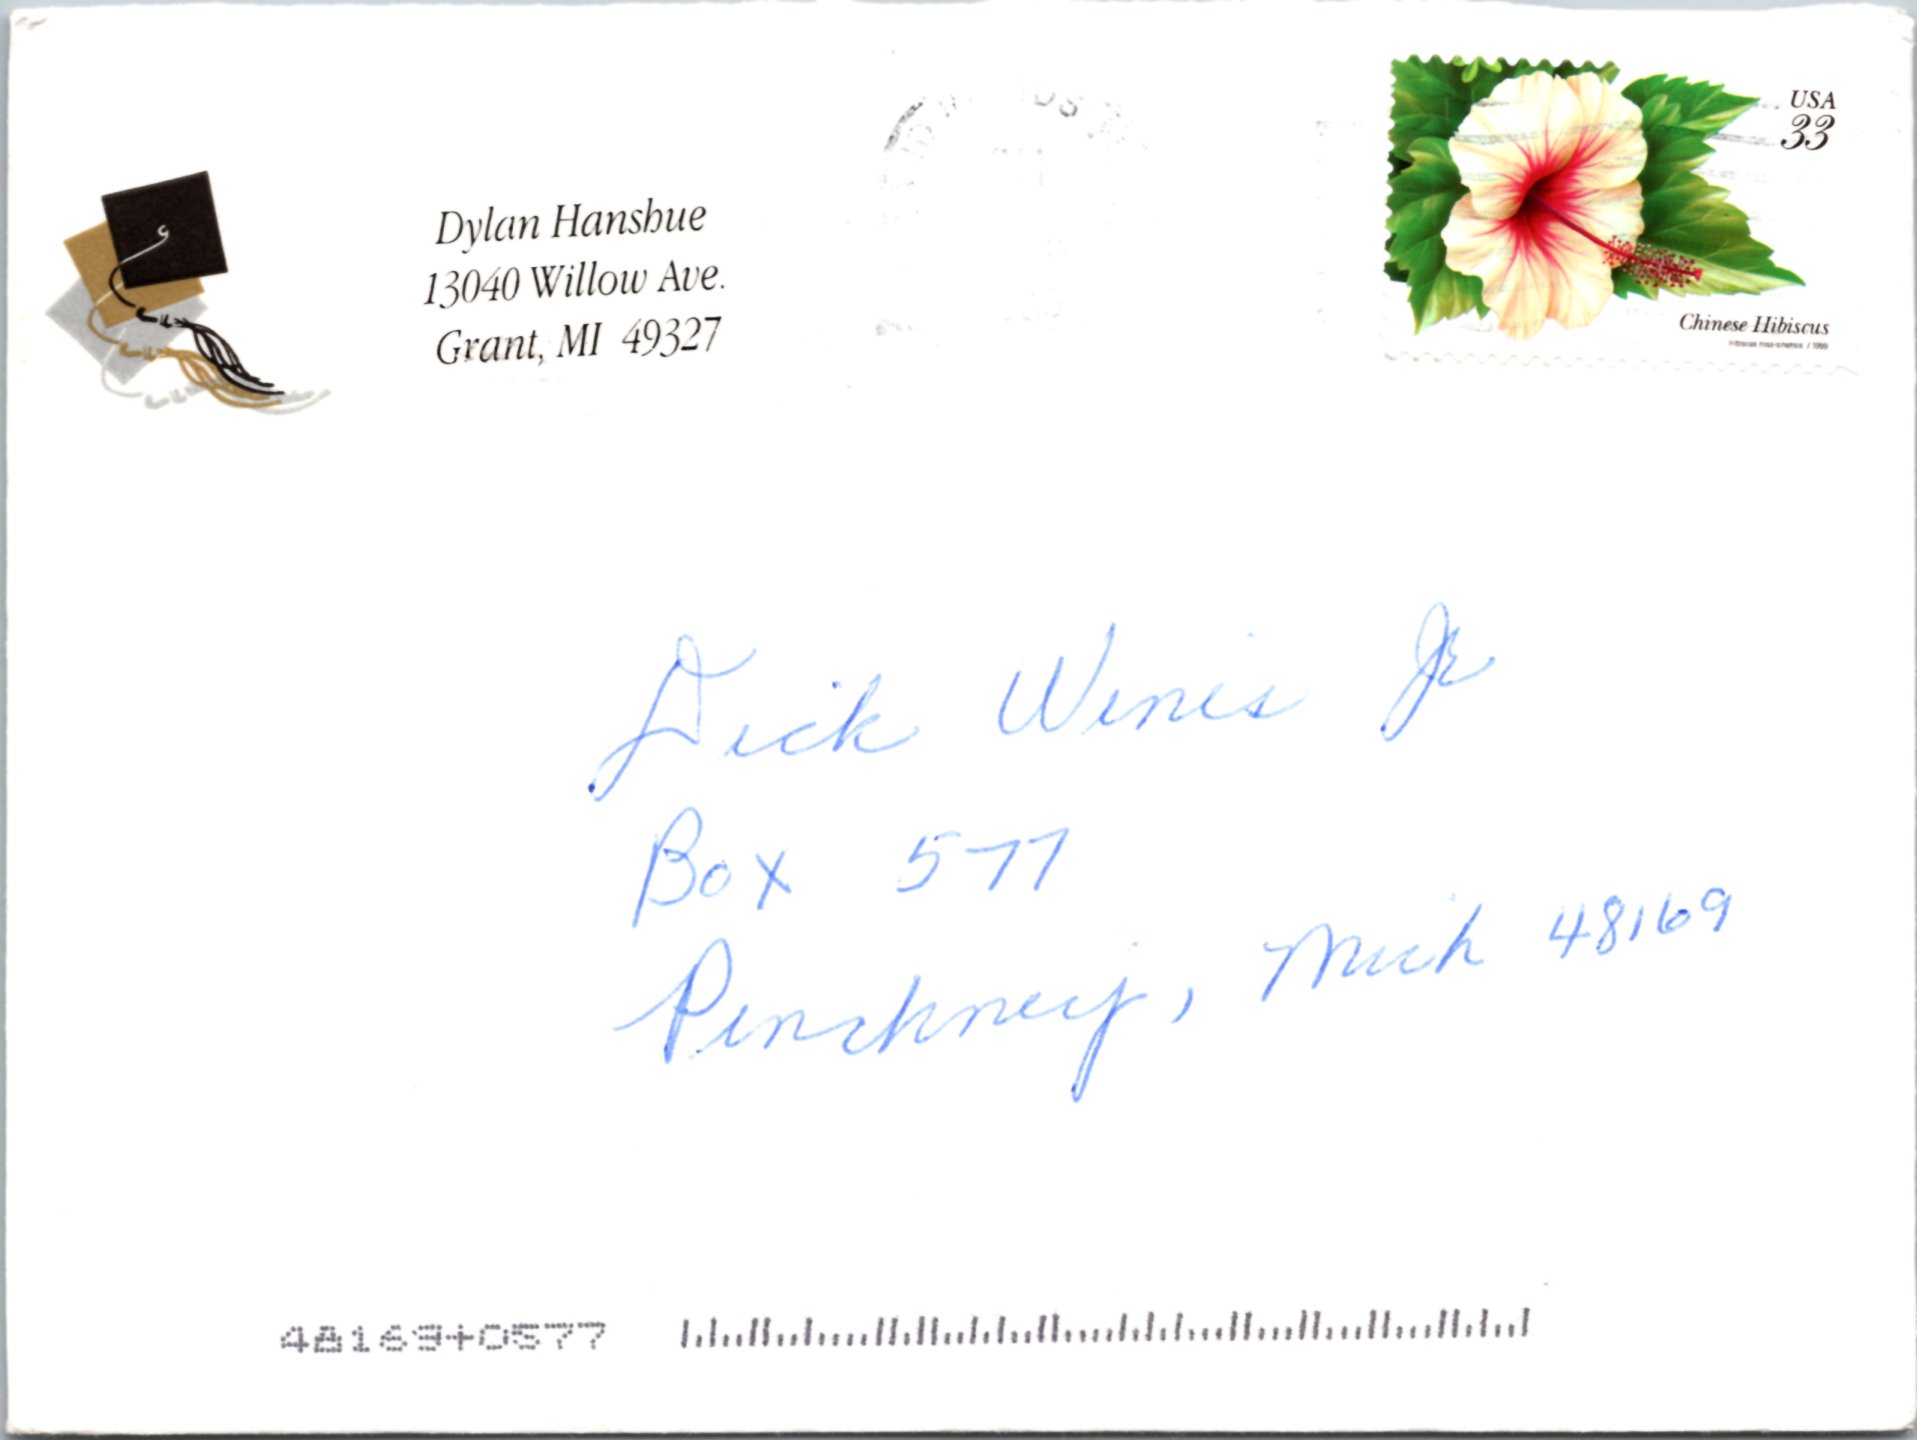 Dylan Hanshue
13040 Willow Ave.
Grant, MI 49327
USA
33
Chinese Hibiscus
Dick Wines Jr
Box 577
Pinckney, Mich 48169
48169+0577